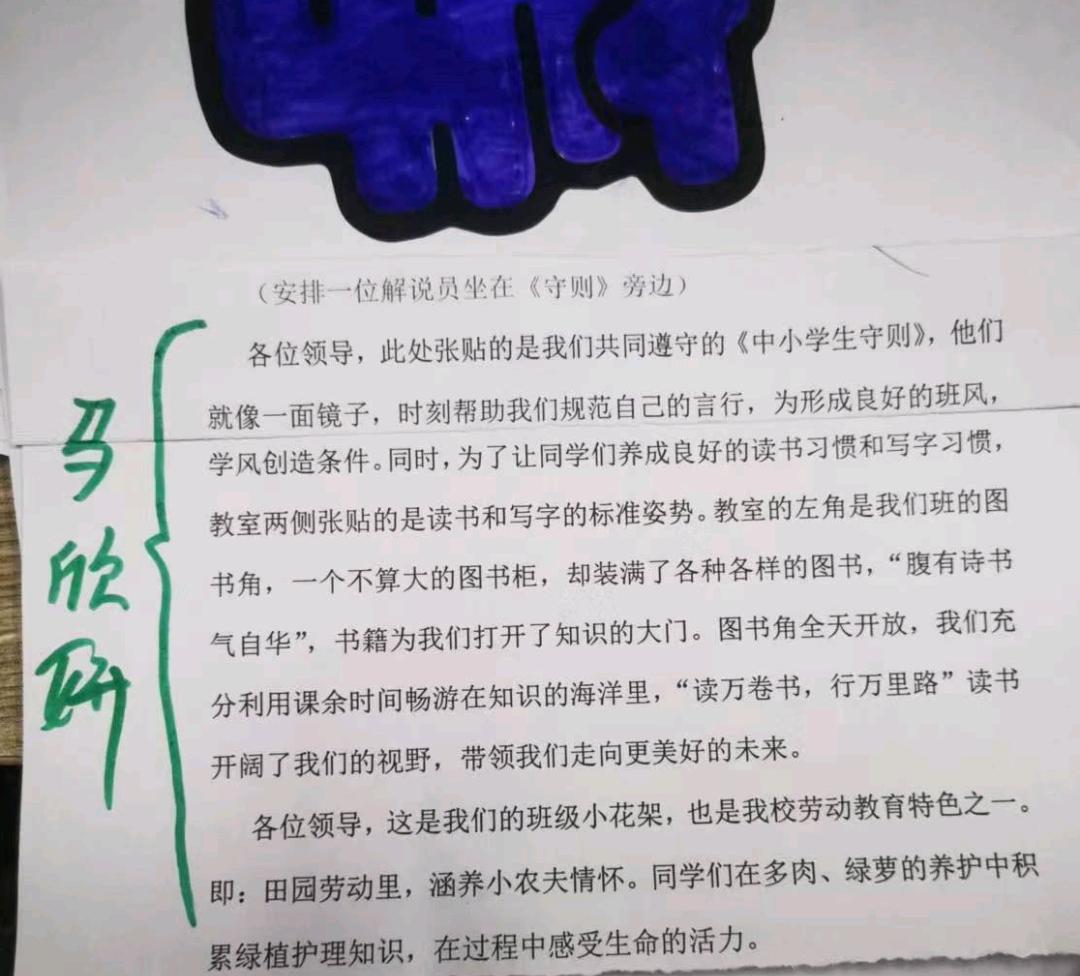 （安排一位解说员坐在《守则》旁边）
各位领导，此处张贴的是我们共同遵守的《中小学生守则》，他们
就像一面镜子，时刻帮助我们规范自己的言行，为形成良好的班风，
学风创造条件。同时，为了让同学们养成良好的读书习惯和写字习惯，
教室两侧张贴的是读书和写字的标准姿势。教室的左角是我们班的图
书角，一个不算大的图书柜，却装满了各种各样的图书，“腹有诗书
气自华”，书籍为我们打开了知识的大门。图书角全天开放，我们充
分利用课余时间畅游在知识的海洋里，“读万卷书，行万里路”读书
开阔了我们的视野，带领我们走向更美好的未来。
各位领导，这是我们的班级小花架，也是我校劳动教育特色之一。
即：田园劳动里，涵养小农夫情怀。同学们在多肉、绿萝的养护中积
累绿植护理知识，在过程中感受生命的活力。
马欣妍